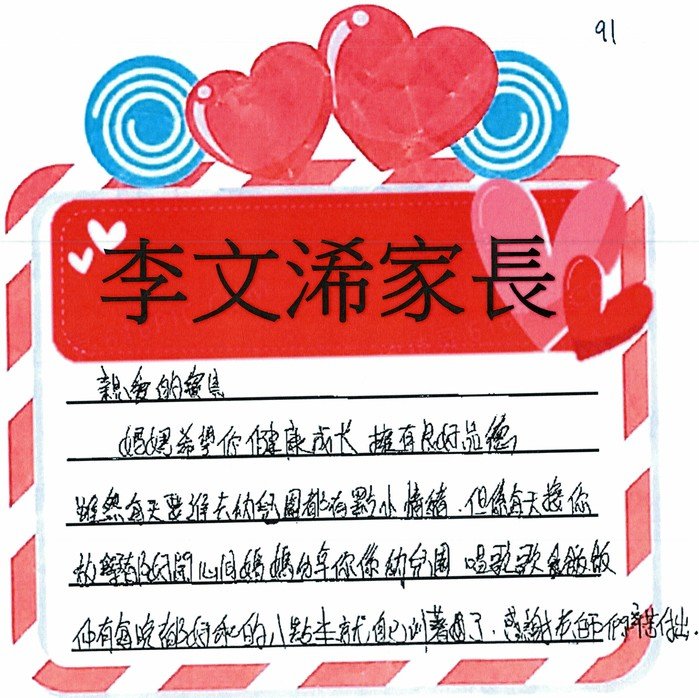 91
李文浠家長
親愛的寶貝
媽媽希望你健康成长 擁有良好品德
雖然每天要進去幼兒園都有點小情緒，但係每天接你
放學都好開心同媽媽分享你係幼兒園 唱歌歌食飯飯
仲有每晚都好乖的八點半就自己訓著了，感謝老師們辛苦付出.